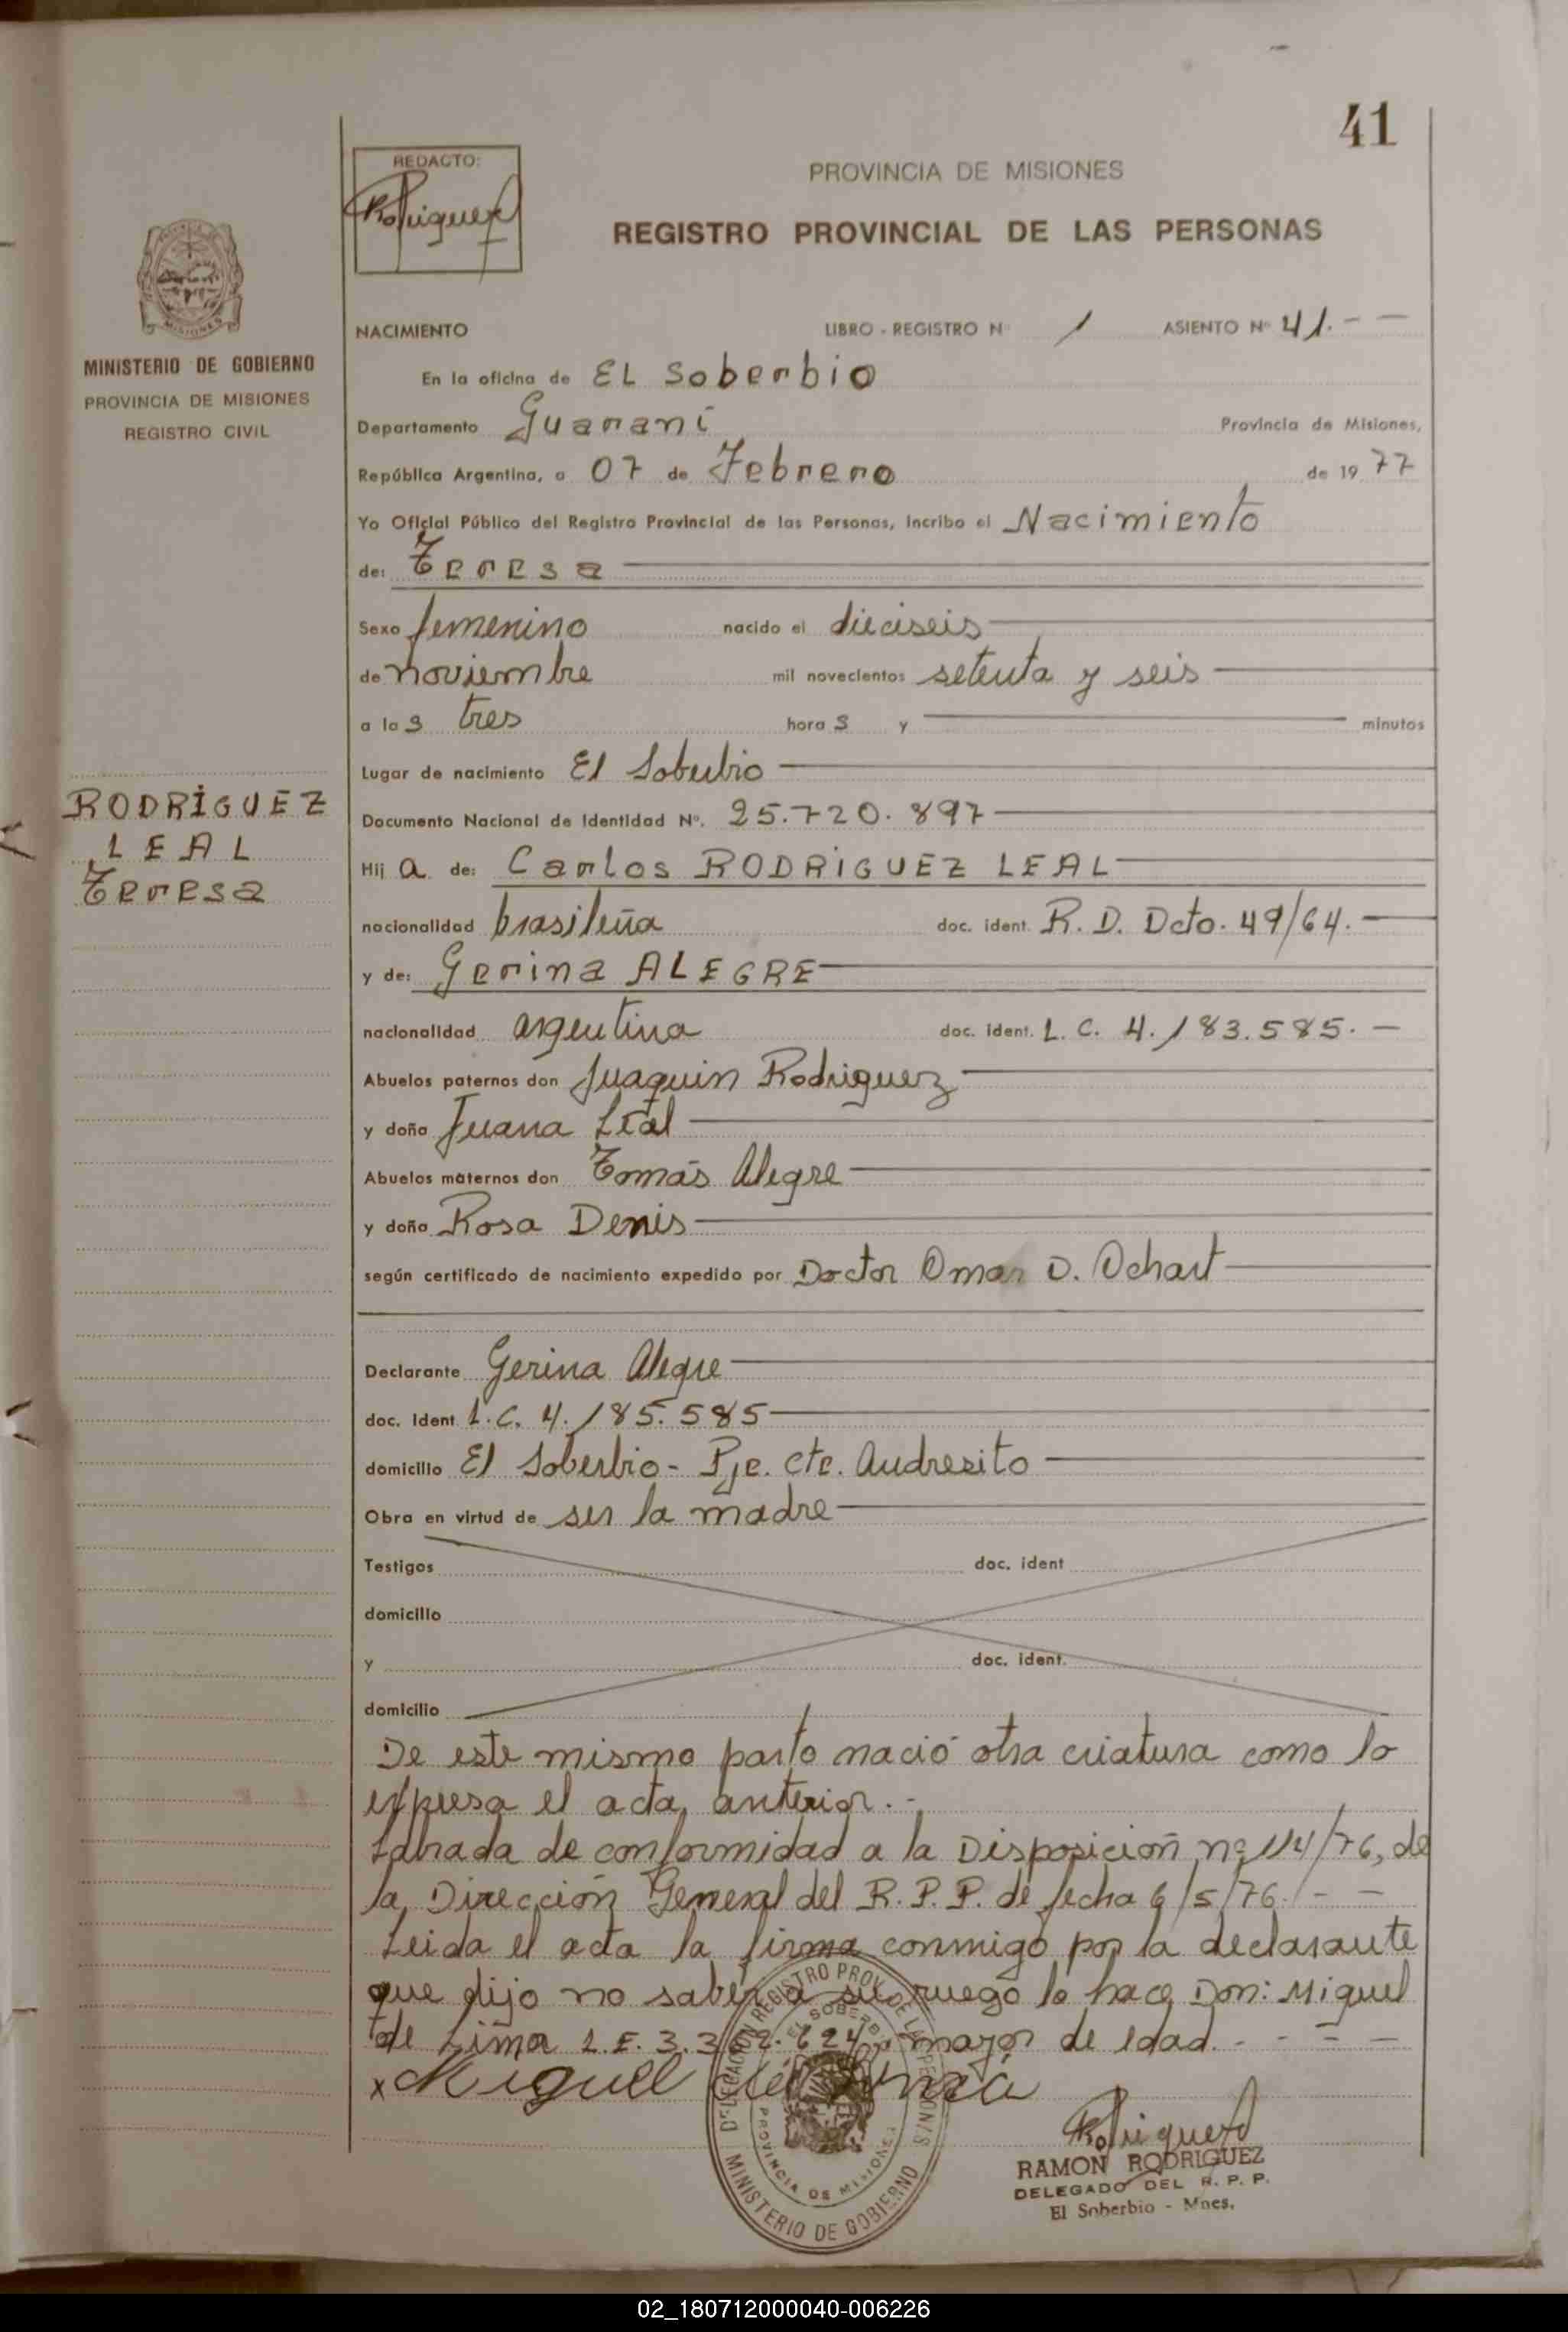 41
REDACTO:
Rodriguez
PROVINCIA DE MISIONES
REGISTRO PROVINCIAL DE LAS PERSONAS
MISIONES
MINISTERIO DE GOBIERNO
PROVINCIA DE MISIONES
REGISTRO CIVIL
NACIMIENTO LIBRO - REGISTRO Nº 1 ASIENTO Nº 41.- -
En la oficina de EL Soberbio
Departamento Guaraní Provincia de Misiones,
República Argentina, a 07 de Febrero de 19 77
Yo Oficial Público del Registro Provincial de las Personas, incribo el Nacimiento
de: Teresa
Sexo femenino nacido el dieciseis
de noviembre mil novecientos setenta y seis
a las tres horas y minutos
Lugar de nacimiento El Soberbio
RODRÍGUEZ
LEAL
Teresa
Documento Nacional de Identidad Nº. 25.720.897
Hija de: Carlos RODRÍGUEZ LEAL
nacionalidad brasileña doc. ident. R. D. Dcto. 49/64.
y de: Gerina ALEGRE
nacionalidad argentina doc. ident. L. C. 4.183.585. -
Abuelos paternos don Juaquin Rodriguez
y doña Juana Leal
Abuelos maternos don Tomás Alegre
y doña Rosa Denis
según certificado de nacimiento expedido por Doctor Omar D. Ochart
Declarante Gerina Alegre
doc. ident L.C. 4.185.585
domicilio El Soberbio - Pje. Cte. Andresito
Obra en virtud de ser la madre
Testigos doc. ident
domicilio
y doc. ident.
domicilio
De este mismo parto nació otra criatura como lo
expresa el acta anterior. -
Labrada de conformidad a la Disposición nº 114/76, de
la Dirección General del R. P. P. de fecha 6/5/76. - -
Leida el acta la firma conmigo por la declarante
que dijo no saber a su ruego lo hace Don: Miguel
de Lima L.E. 3.3 624 mayor de edad. - - = -
x Miguel de Lima
DELEGACION REGISTRO PROV. DE LAS PERSONAS
EL SOBERBIO
PROVINCIA DE MISIONES
MINISTERIO DE GOBIERNO
Rodriguez
RAMON RODRIGUEZ
DELEGADO DEL R. P. P.
El Soberbio - Mnes.
02_180712000040-006226